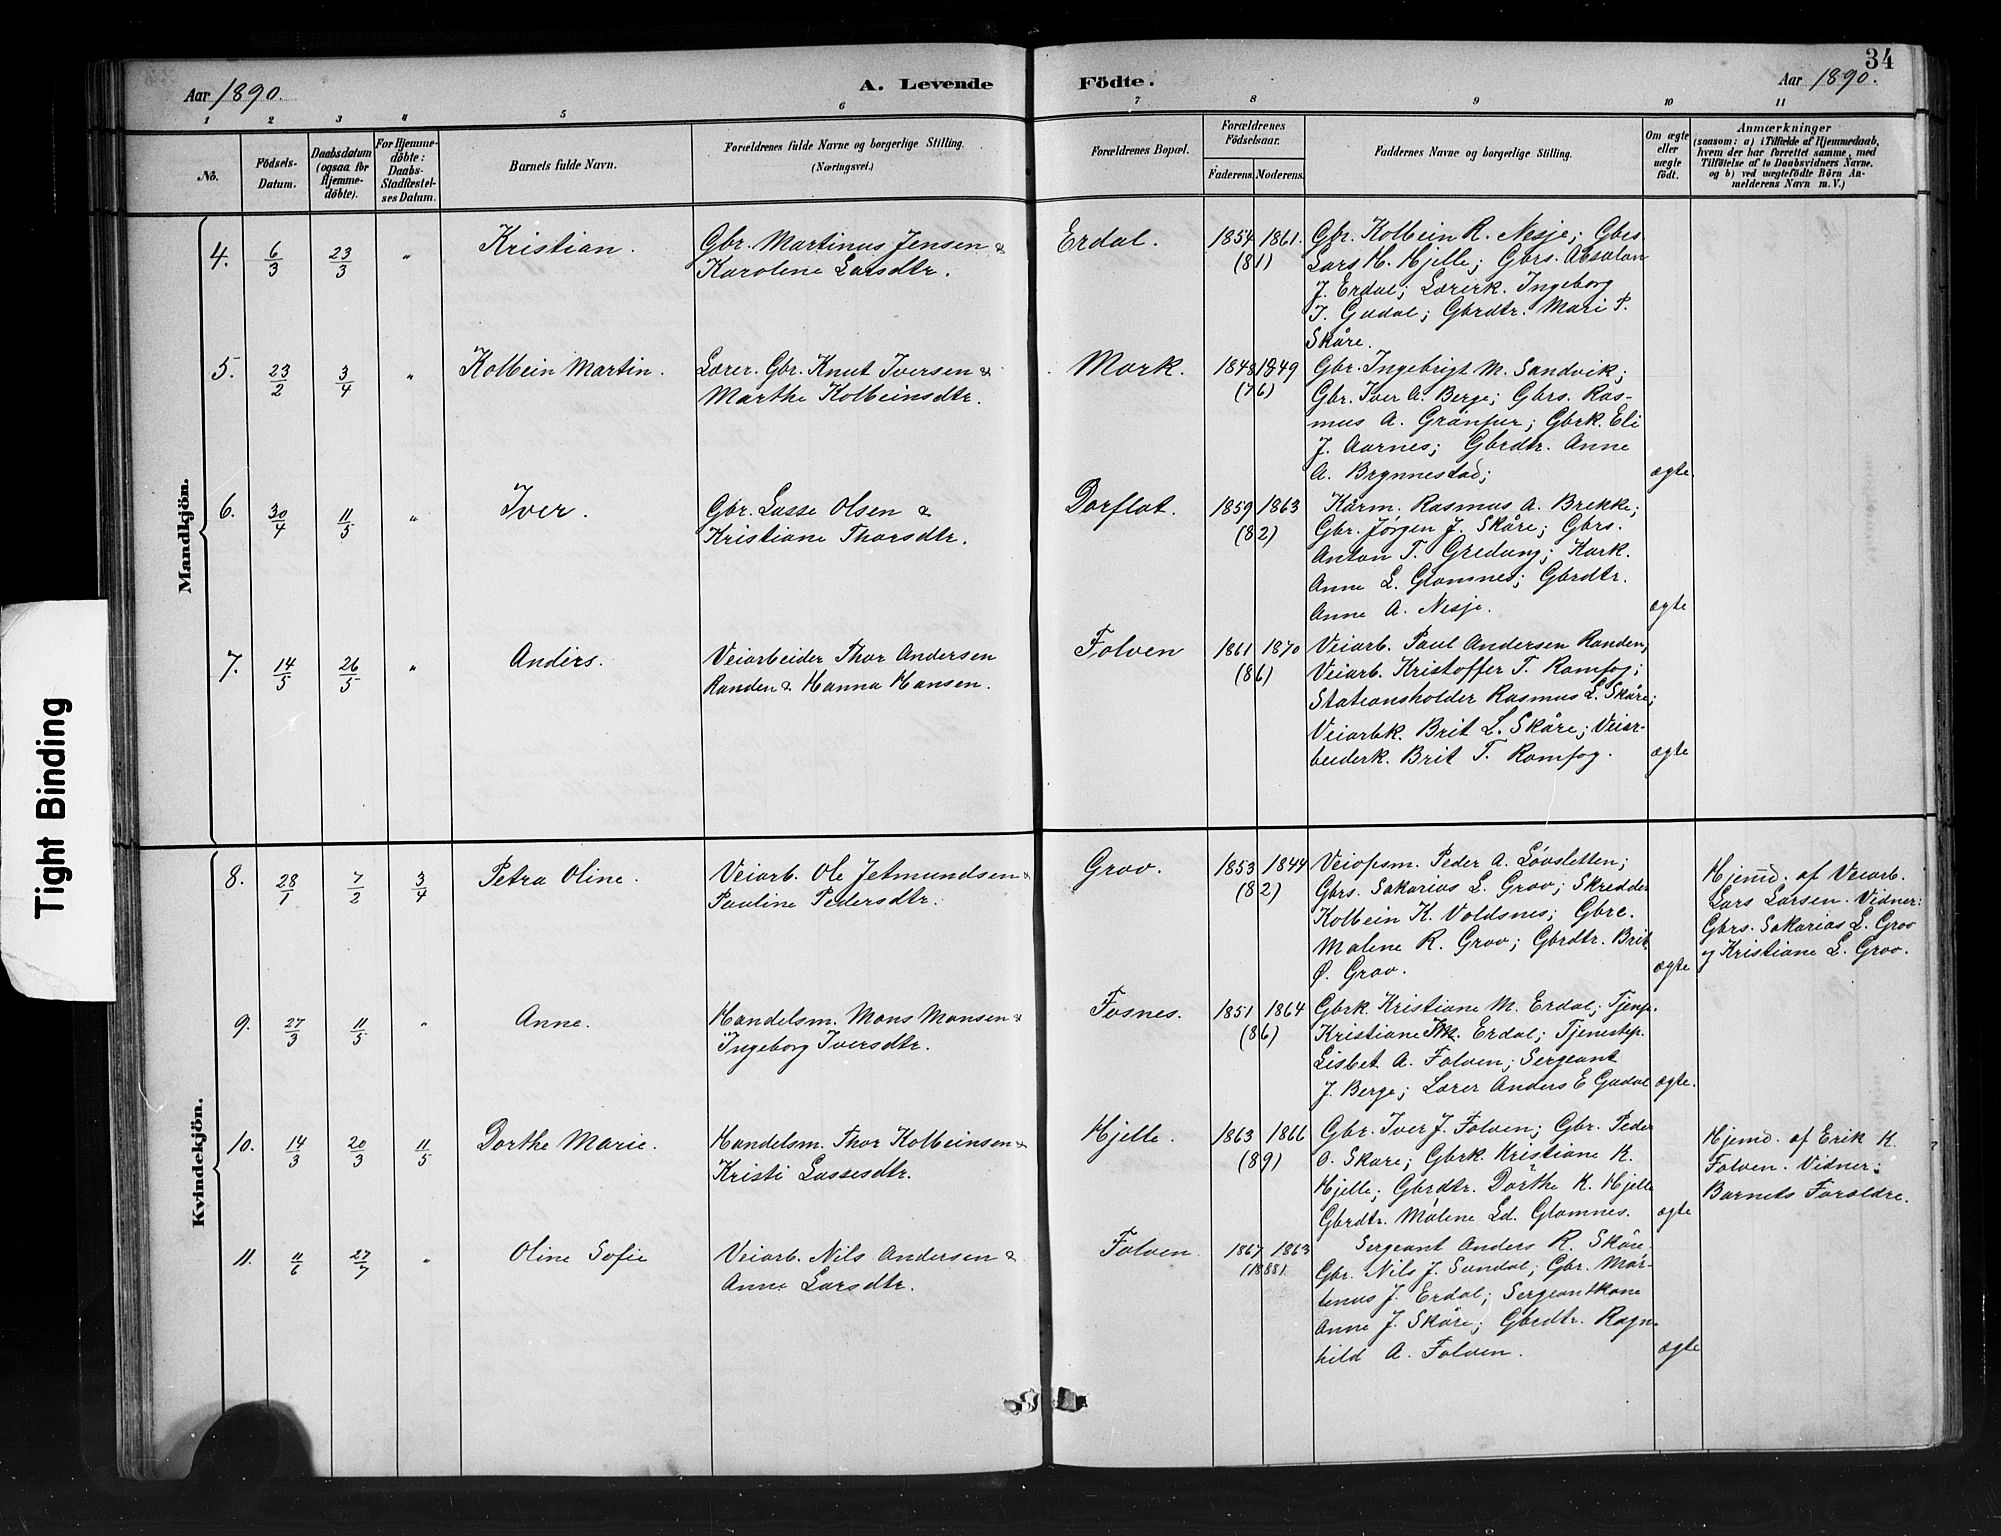 34
Aar 1890.
A. Levende
Födte.
Aar 1890.
1 2 3 4 5 6 7 8 9 10 11
No.
Födsels-
Datum.
Daabsdatum
(ogsaa for
Hjemme-
döbte).
For Hjemme-
döbte:
Daabs-
Stadfæstel-
ses Datum.
Barnets fulde Navn.
Forældrenes fulde Navne og borgerlige Stilling.
(Næringsvei.)
Forældrenes Bopæl.
Forældrenes
Födselsaar.
Faderens. Moderens.
Faddernes Navne og borgerlige Stilling.
Om ægte
eller
uægte
födt.
Anmærkninger
(saasom: a) i Tilfælde af Hjemmedaab,
hvem der har forrettet samme, med
Tilföielse af to Daabsvidners Navne,
og b) ved uægtefödte Börn An-
melderens Navn m. V.)
Mandkjön.
4. 6/3 23/3 " Kristian.
Gbr. Martinus Jensen &
Karolene Larsdtr.
Erdal.
1854 1861.
(81)
Gbr. Kolbein R. Nesje; Gbrs.
Lars H. Hjelle; Gbrs. Absalon
J. Erdal; Lærerk. Ingeborg
I. Gudal; Gbrdtr. Mari P.
Skåre.
5. 23/2 3/4 " Kolbein Martin.
Lærer. Gbr. Knut Iversen &
Marthe Kolbeinsdtr.
Mork.
1848 1849
(76)
Gbr. Ingebrigt M. Sandvik;
Gbr. Iver A. Berge; Gbrs. Ras-
mus A. Grönfur; Gbrk. Eli
J. Aarnes; Gbrdtr. Anne
A. Brynnestad;
ægte
6. 30/4 11/5 " Iver.
Gbr. Lasse Olsen &
Kristiane Thorsdtr.
Dorflat.
1859 1863
(82)
Kårm. Rasmus A. Brekke;
Gbr. Jørgen J. Skåre; Gbrs.
Anton T. Gredung; Kark.
Anne L. Glomnes; Gbrdtr.
Anne A. Nesje.
ægte
7. 14/5 26/5 " Anders.
Veiarbeider Thor Andersen
Randen & Hanna Hansen.
Folven
1861 1870
(86)
Veiarb. Paul Andersen Randen,
Veiarb. Kristoffer T. Romfog;
Stationsholder Rasmus L. Skåre;
Veiarbk. Brit L. Skåre; Veiar-
beiderk. Brit T. Romfog.
ægte
Kvindekjön.
8. 28/1 7/2 3/4 Petra Oline.
Veiarb. Ole Jetmundsen &
Pauline Pedersdtr.
Grov.
1853 1844
(82)
Veiopsm. Peder A. Lövsletten;
Gbrs. Sakarias L. Grov; Skredder
Kolbein K. Voldsnes; Gbre.
Malene R. Grov; Gbrdtr. Brit
Ø. Grov.
ægte
Hjemd. af Veiarb.
Lars Larsen. Vidner:
Gbrs. Sakarias L. Grov
og Kristiane L. Grov.
9. 27/3 11/5 " Anne.
Handelsm. Mons Monsen &
Ingeborg Iversdtr.
Fosnes.
1851 1864
(86)
Gbrk. Kristiane M. Erdal; Tjenp.
Kristiane M. Erdal; Tjenestep.
Lisbet A. Folven; Sergeant
J. Berge; Lærer Anders E Gudal
ægte.
10. 14/3 20/3 11/5 Dorthe Marie.
Handelsm. Thor Kolbeinsen &
Kristi Lassesdtr.
Hjelle.
1863 1866
(89)
Gbr. Iver J. Folven; Gbr. Peder
O. Skare; Gbrk. Kristiane K.
Hjelle; Gbrdtr. Dorthe K. Hjelle
Gbrdtr. Målene Ld. Glomnes.
ægte
Hjemd. af Erik K.
Folven. Vidner:
Barnets Foræ­ldre.
11. 11/6 27/7 " Oline Sofie
Veiarb. Nils Andersen &
Anne Larsdtr.
Folven.
1867 1863
(1888)
Sergeant Anders R. Skåre.
Gbr. Nils J. Sundal; Gbr. Mar-
tenus J. Erdal; Sergeantkone
Anne J. Skåre; Gbrdtr. Ragn-
hild A. Folven.
ægte
Tight Binding